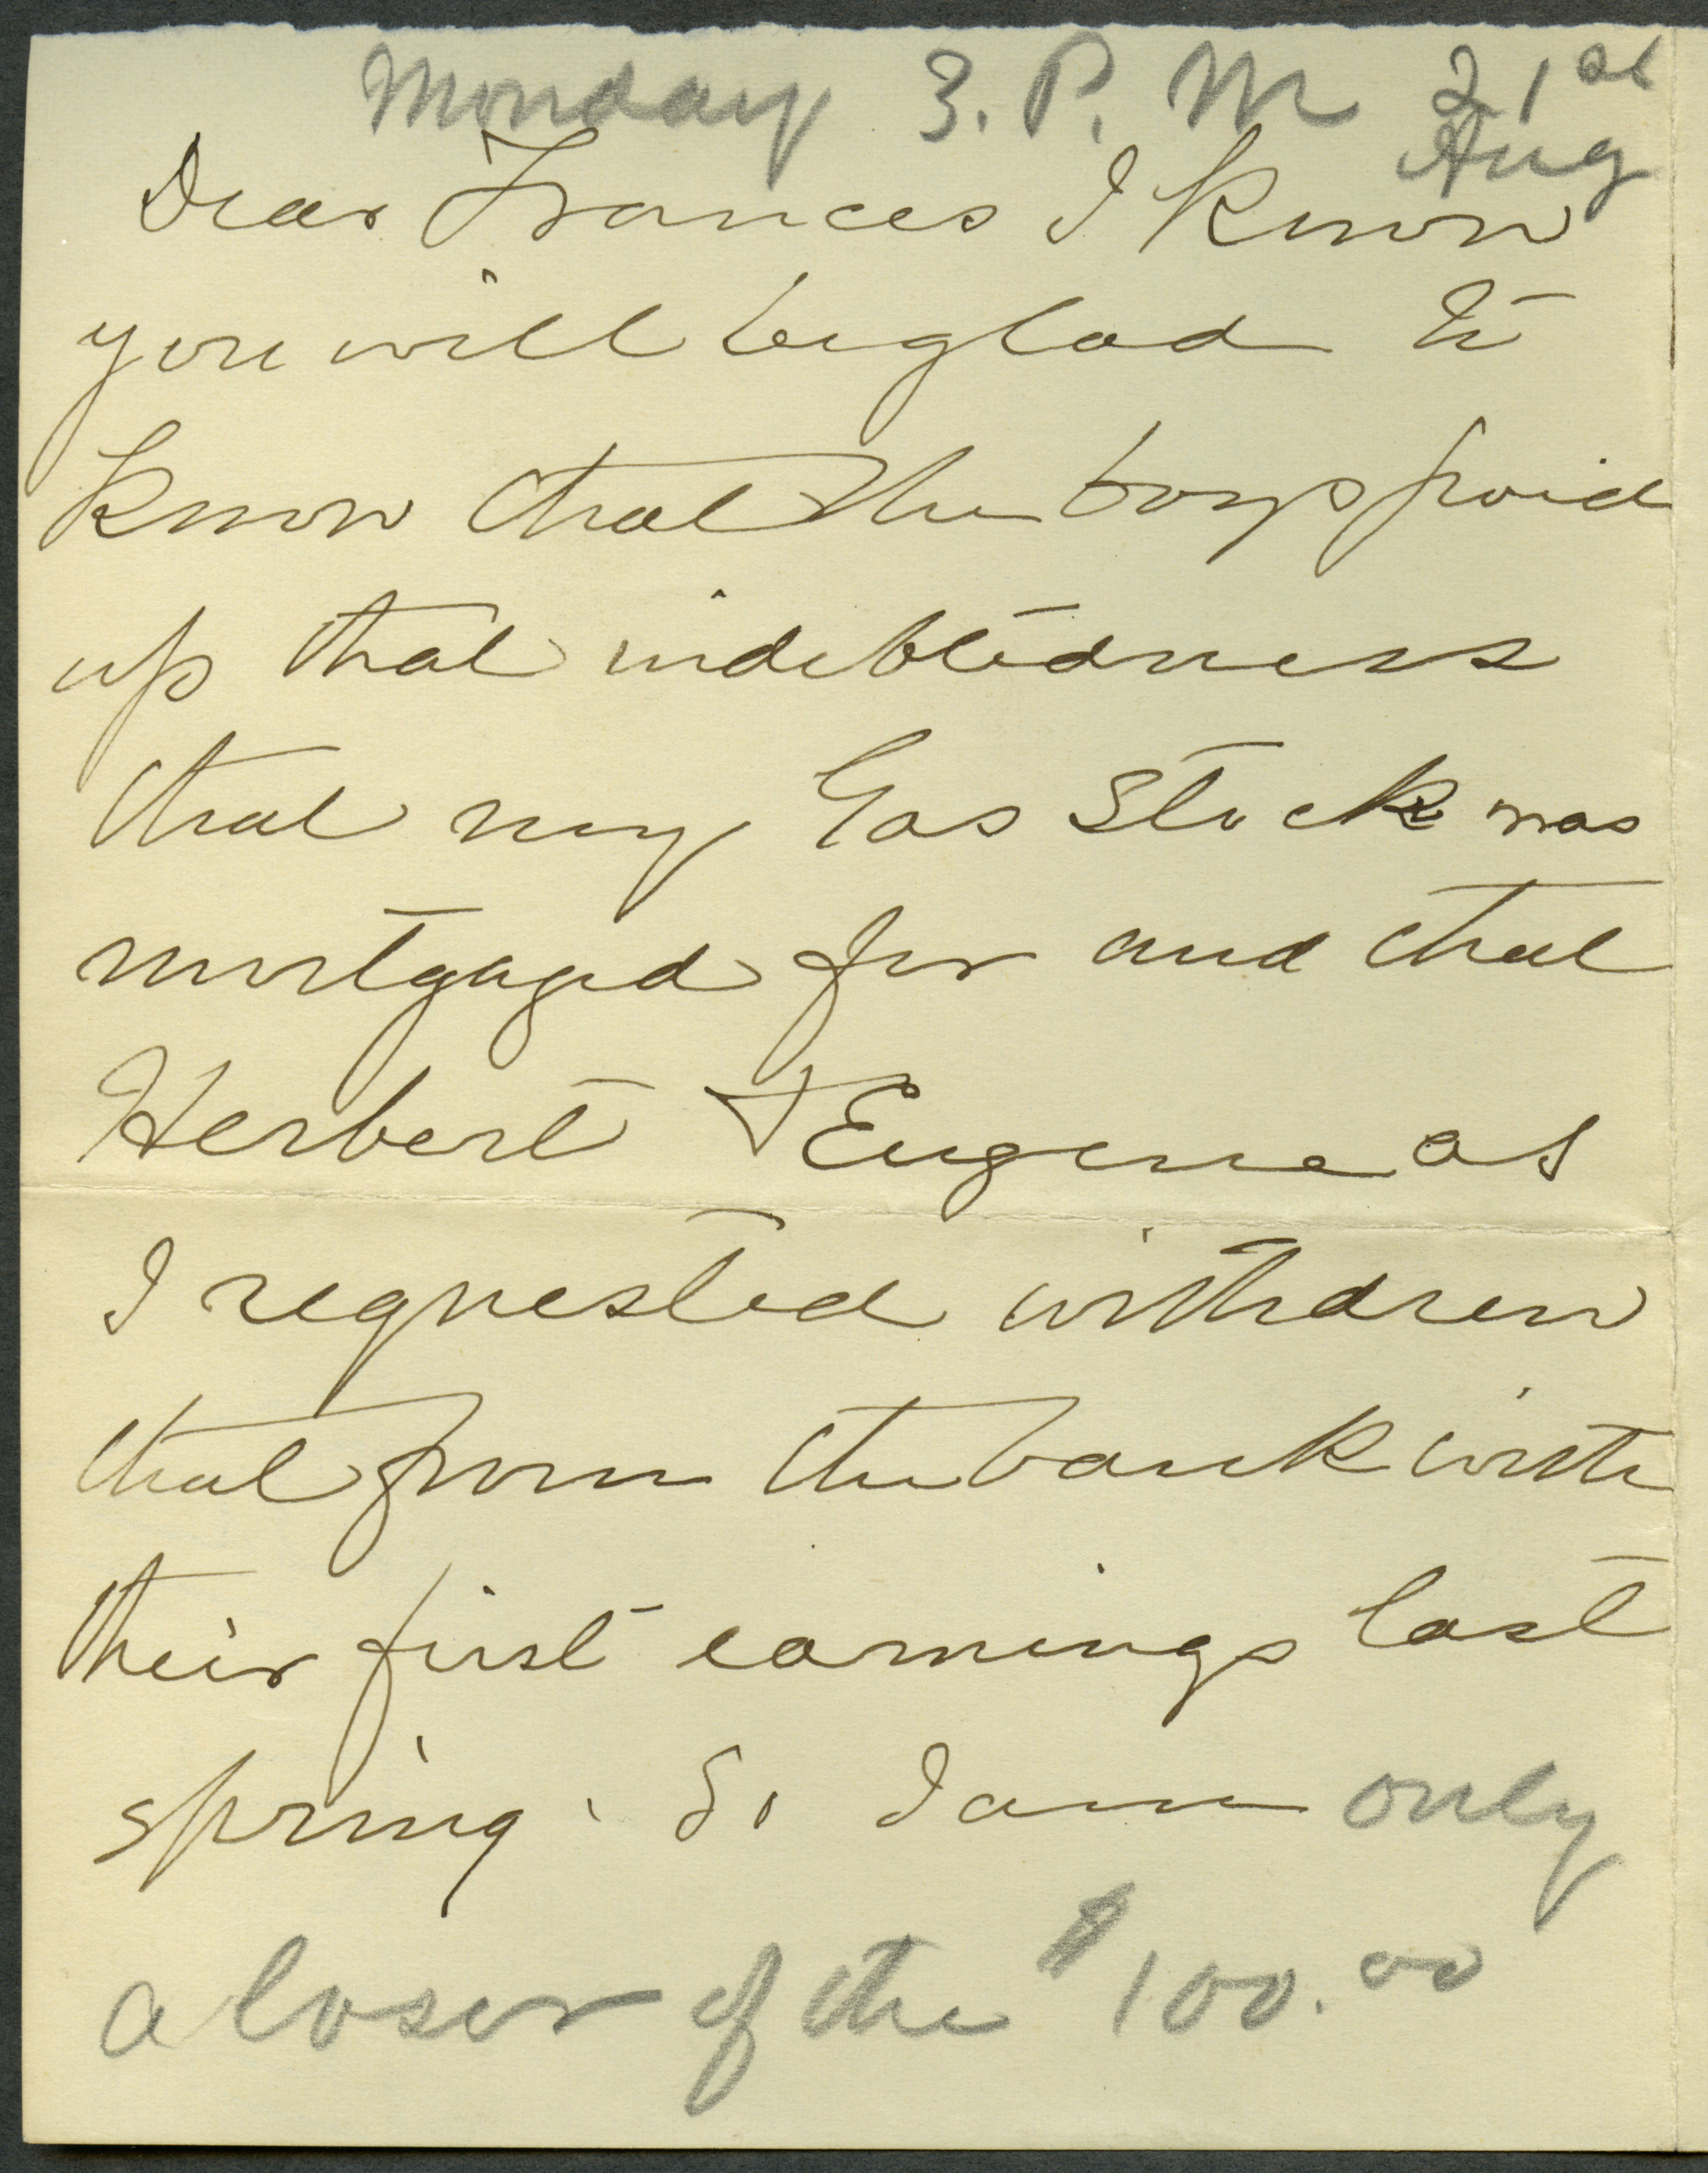 Monday 3. P. M 21st
Aug
Dear Frances I Know
you will be glad to
Know that the boys paid
up that indebtedness
that my Gas Stock was
mortgaged for and that
Herbert & Eugene as
I requested withdrew
that from the bank with
their first earnings last
spring. So I am only
a loser of the $100.00